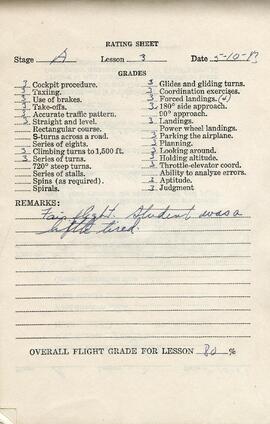 RATING SHEET
Stage A Lesson 3 Date 5-10-43
GRADES
Cockpit procedure.
3 Taxiing.
3 Use of brakes.
3 Take-offs.
Accurate traffic pattern.
3 Straight and level.
Rectangular course.
S-turns across a road.
Series of eights.
3 Climbing turns to 1,500 ft.
3 Series of turns.
720° steep turns.
Series of stalls.
Spins (as required).
Spirals.
3 Glides and gliding turns.
Coordination exercises.
3 Forced landings.
3 180° side approach.
90° approach.
3 Landings.
Power wheel landings.
3 Parking the airplane.
3 Planning.
Looking around.
3 Holding altitude.
3 Throttle-elevator coord.
Ability to analyze errors.
3 Aptitude.
3 Judgment
REMARKS:
Fair flight. Student was a
little tired.
OVERALL FLIGHT GRADE FOR LESSON 80 %